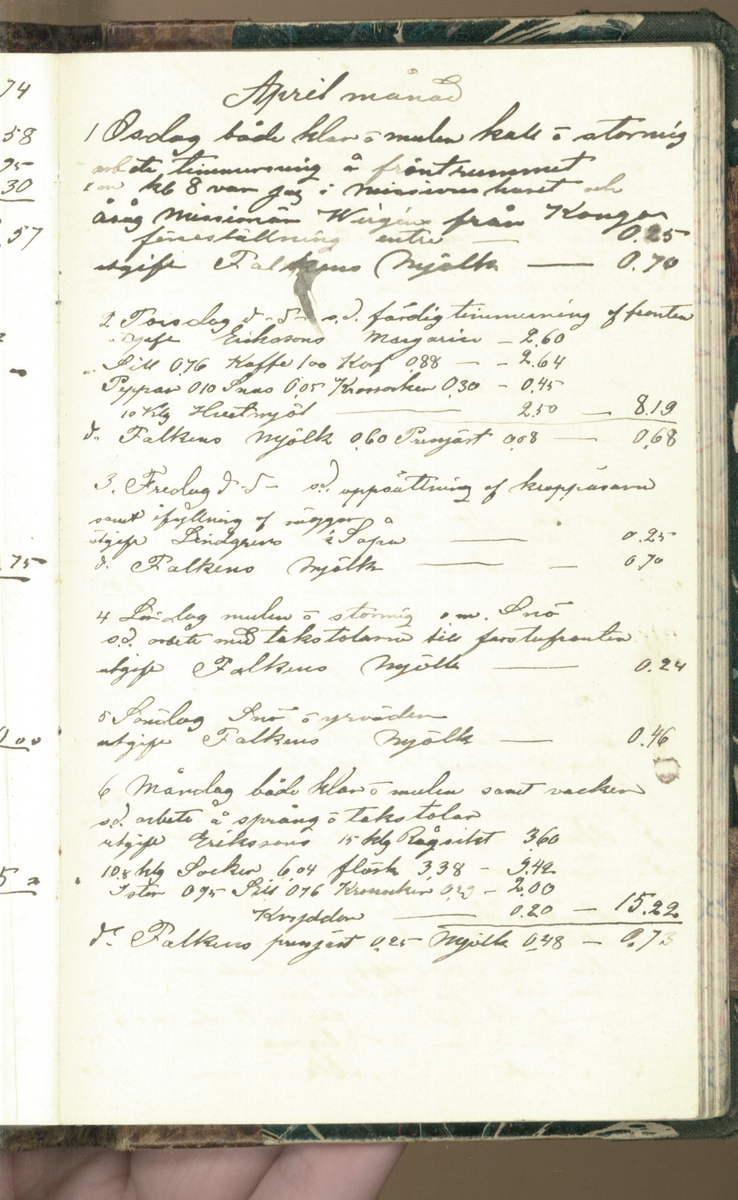 74
58
95
30
57
75
0.00
April månad
1 Osdag både klar o mulen kall o stormig
arbete timmersning å fröntrummet
em kl 8 var jag i missionshuset och
åsåg Missionär Wirgins från Kongo
föreställning entre — 0.25
utgift Falkens Mjölk — 0.70
2 Torsdag d-d- s.d. färdigtimmerning af fronten
utgift Erikssons Margarin — 2.60
Sill 0.76 Kaffe 1.00 Korf 0.88 — 2.64
Peppar 0.10 Snus 0.05 Kronärken 0.30 — 0.45
10 Klg Hvetmjöl — 2.50 — 8.19
d- Falkens Mjölk 0.60 Presjäst 0.08 — 0.68
3. Fredag d-d- s.d. uppsättning af kroppåsarne
samt ifyllning af väggar
utgift Lindgrens Såpa — 0.25
d. Falkens Mjölk — 0.70
4 Lördag mulen o stormig em. Snö
s.d. arbete med takstolarne till farstufronten
utgift Falkens Mjölk — 0.24
5 Söndag Snö o yrväder
utgift Falkens Mjölk — 0.46
6 Måndag både klar o mulen samt vacker
s.d. arbete å språng o takstolar
utgift Erikssons 15 klg Rågsikt 3.60
10.8 klg Socker 6.04 fläsk 3.38 — 9.42
Ister 0.95 Sill 0.76 0.29 — 2.00
Kryddor — 0.20 — 15.22
d- Falkens presjäst 0.25 Mjölk 0.48 — 0.73